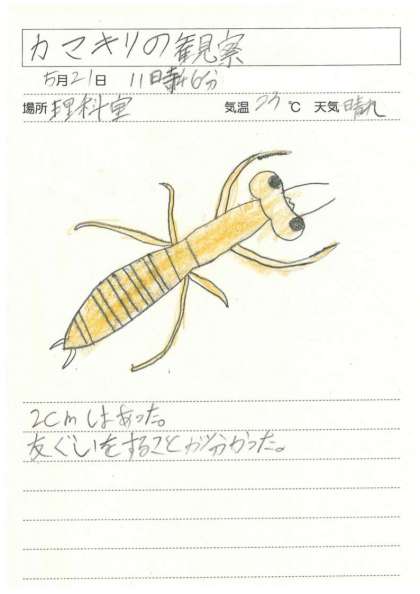 カマキリの観察
5月21日 11時46分
場所 理科室 気温 23℃ 天気 晴れ
2cmはあった。
友ぐいをすることが分かった。